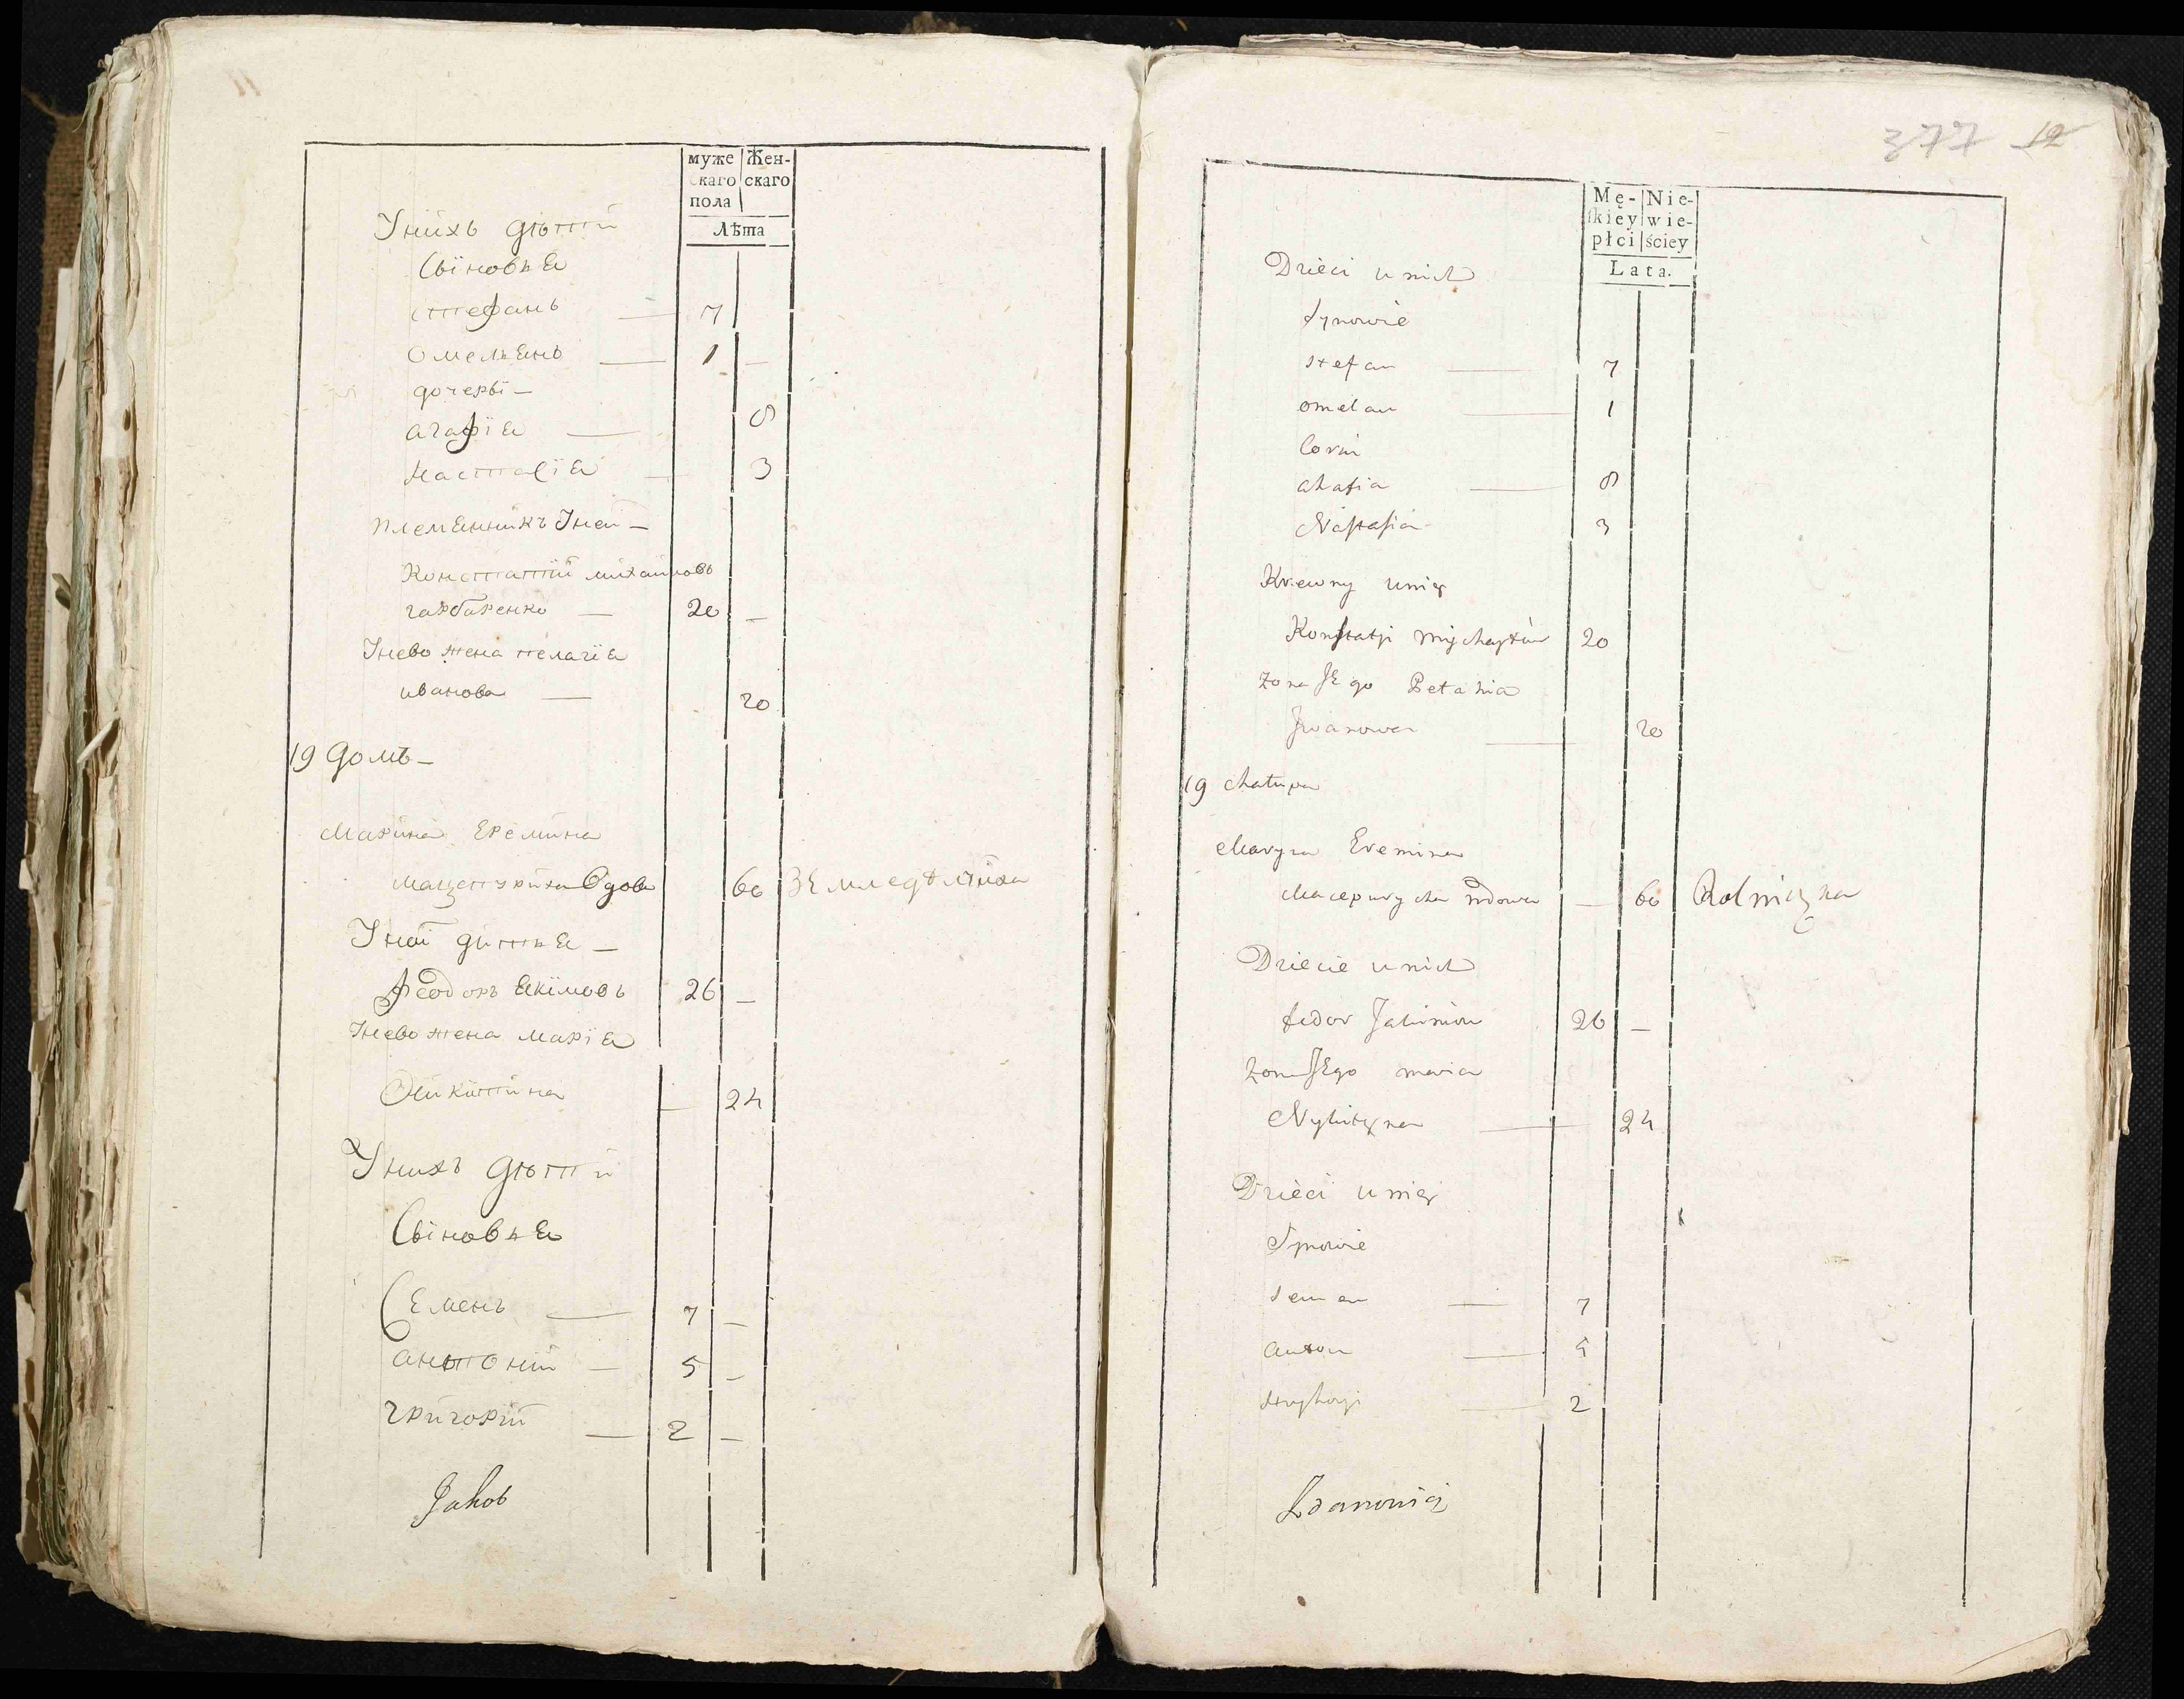 11
муже
скаго
пола
Жен-
скаго
Лѣта
Унихъ дѣтей
Сыновья
Стефанъ — 7
Омельянъ — 1 —
дочеры —
агафія — 8
Настасія — 3
племянникъ Унеи —
Констатій михайловъ
гарбаренко — 20 —
Унево жена пелагія
иванова — 20
19 домъ —
Марина Еремина
мацепуриха вдова 60 Земледѣлиха
Унеи дитья —
Феодоръ Якімовъ 26 —
Унево жена марія
Никитина — 24
Унихъ дѣтей
Сыновья
Семенъ — 7 —
антоній — 5 —
григорій — 2 —
Jakob
377 12
Mę-
ſkiey
płci
Nie-
wie-
ściey
Lata.
Dzieci u nich
Synowie
stefan — 7
omelan — 1
Corki
ahafia — 8
Nastasia 3
Krewny unie
Konstatyi Mychayłów 20
żona JEgo Pelahia
Jwanowa — 20
19 chałupa
Maryna Eremina
Macepurycha wdowa — 60 Rolniczka
Dziecie u nich
fedor Jakimów 26 —
żona JEgo maria
Nykityna — 24
Dzieci unich
Synowie
semen — 7
anton — 5
Hryhoryi — 2
Zdanowicz